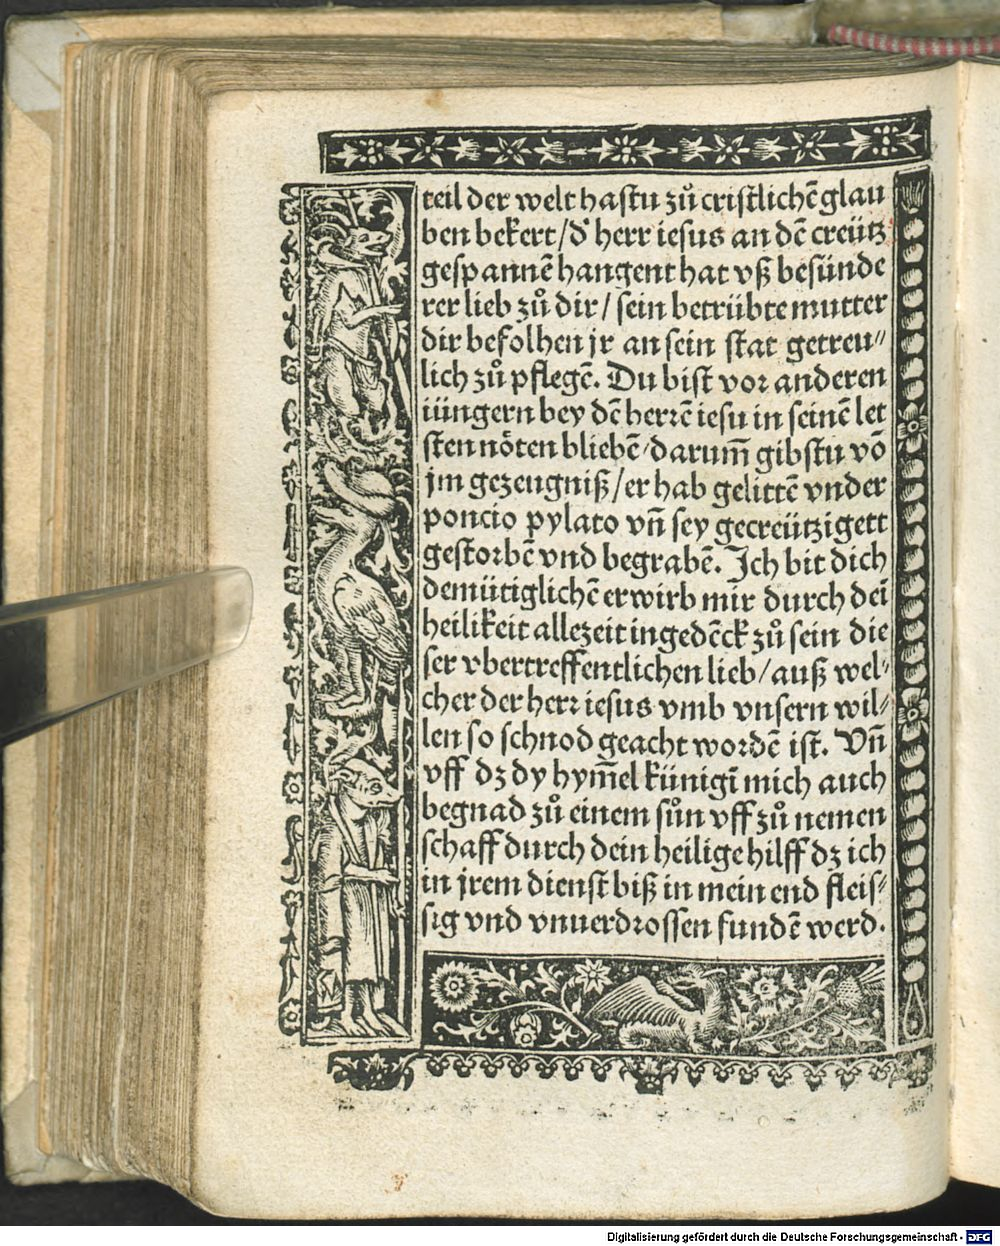 teil der welt hastu zuͦ cristlichē glau
ben bekert/ď herr iesus an dē creütz
gespannē hangent hat vß besünde
rer lieb zuͦ dir/sein betrübte mutter
dir befolhen jr an sein stat getreu⸗
lich zuͦ pflegē. Du bist vor anderen
iüngern bey dē herrē iesu in seinē let
sten nöten bliebē/darum̄ gibstu vō
jm gezeugniß/er hab gelittē vnder
poncio pylato vn̄ sey gecreützigett
gestorbē vnd begrabē. Ich bit dich
demütiglichē erwirb mir durch dei̅
heilikeit allezeit ingedēck zuͦ sein die
ser vbertreffentlichen lieb/auß wel⸗
cher der herr iesus vmb vnsern wil⸗
len so schnod geacht wordē ist. Vn̄
vff dz dy hym̄el künigi̅ mich auch
begnad zuͦ einem suͦn vff zuͦ nemen
schaff durch dein heilige hilff dz ich
in jrem dienst biß in mein end fleis⸗
sig vnd vnuerdrossen fundē werd.
Digitalisierung gefördert durch die Deutsche Forschungsgemeinschaft - DFG